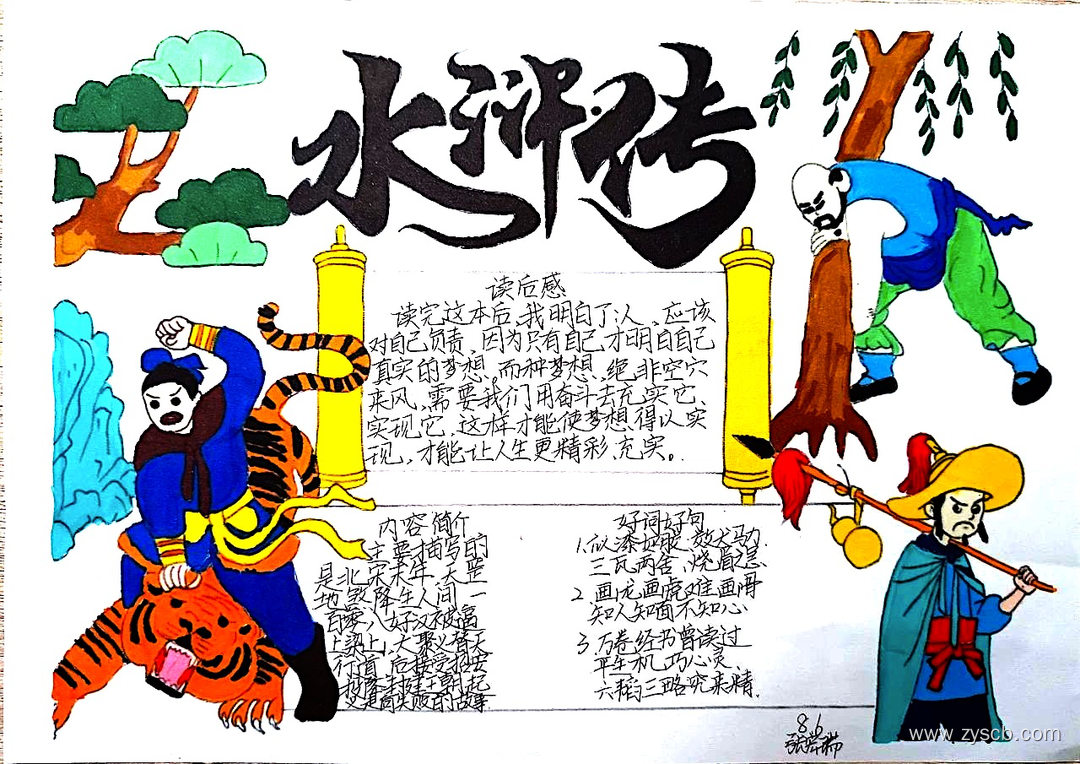 水浒传
读后感
读完这本后,我明白了:人、应该
对自己负责、因为只有自己、才明白自己
真实的梦想、而种梦想、绝非空穴
来风、需要我们用奋斗去充实它、
实现它、这样才能使梦想得以实
现,才能让人生更精彩、充实。
内容简介
主要描写的
是北宋末年、天罡
地煞降生人间、一
百零八好汉被逼
上梁山,大聚义替天
行道、后接受招安
好词好句
1.似漆如胶、效犬马力
三瓦两舍、烧眉之急
2 画龙画虎难画骨
知人知面不知心
3 万卷经书曾读过
平生机巧心灵、
六韬三略究来精.
8.6
www.zyscb.com